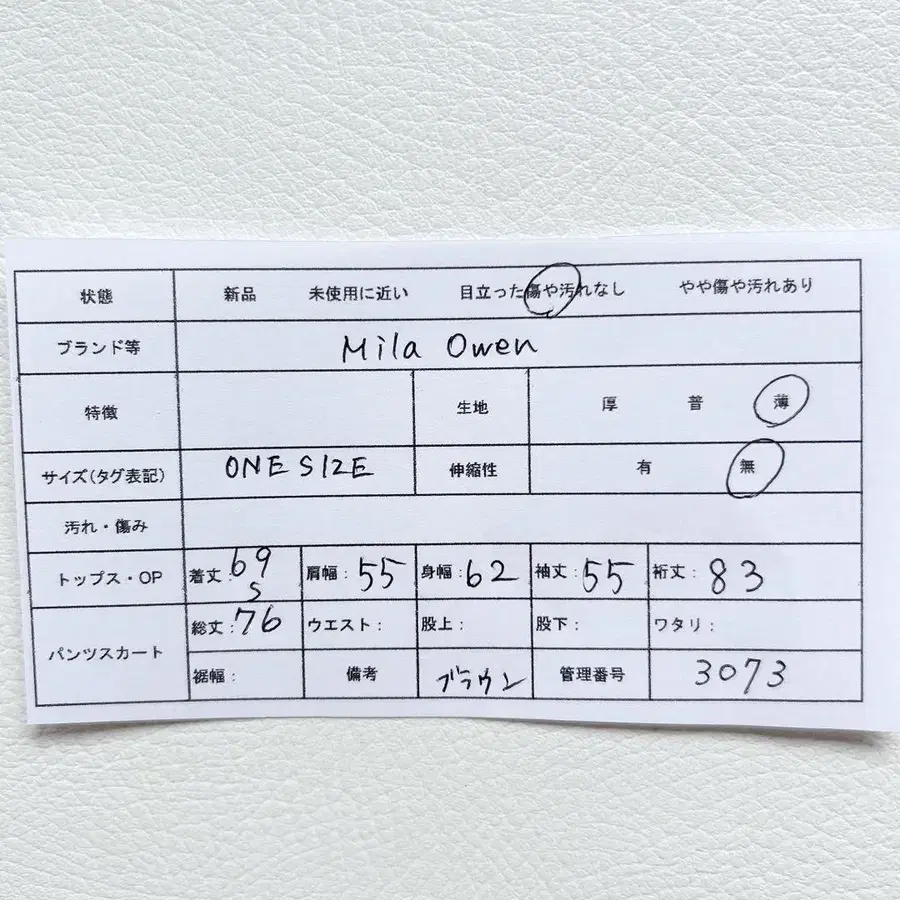 状態 新品 未使用に近い 目立った傷や汚れなし やや傷や汚れあり
ブランド等 Mila Owen
特徴 生地 厚 普 薄
サイズ(タグ表記) ONE SIZE 伸縮性 有 無
汚れ・傷み
トップス・OP 着丈:69 肩幅:55 身幅:62 袖丈:55 裄丈:83
S
パンツスカート 総丈:76 ウエスト: 股上: 股下: ワタリ:
裾幅: 備考 ブラウン 管理番号 3073